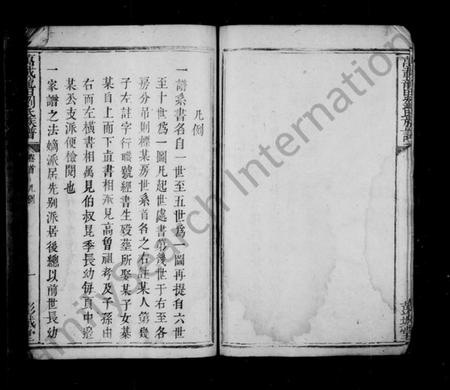 凡例
一譜系書名自一世至五世爲一圖再提自六世
至十世爲一圖凡起世處書第幾世于右至各
房分吊則標某房世系首名之右註某人第幾
子左註字行職號經書生殁塟所娶某子女某
某自上而下直書相承見高曾祖考及子孫由
右而左橫書相属見伯叔昆季長幼
某公支派便檢閱也
一家譜之法嫡派居先别派居後總以前世長幼
卷首 凡例
一
FamilySearch International